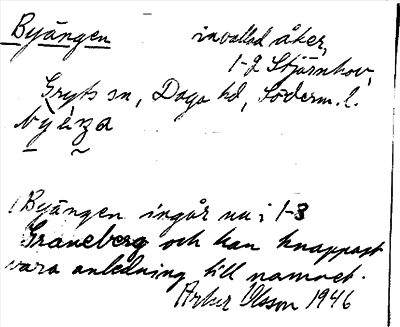 Byängen invallad åker,
1-2 Stjärnhov,
Gryts sn, Daga hd, Söderm. l.
Byängen ingår nu i 1-3
Graneberg och kan knappast
vara anledning till namnet.
Artur Olsson 1946